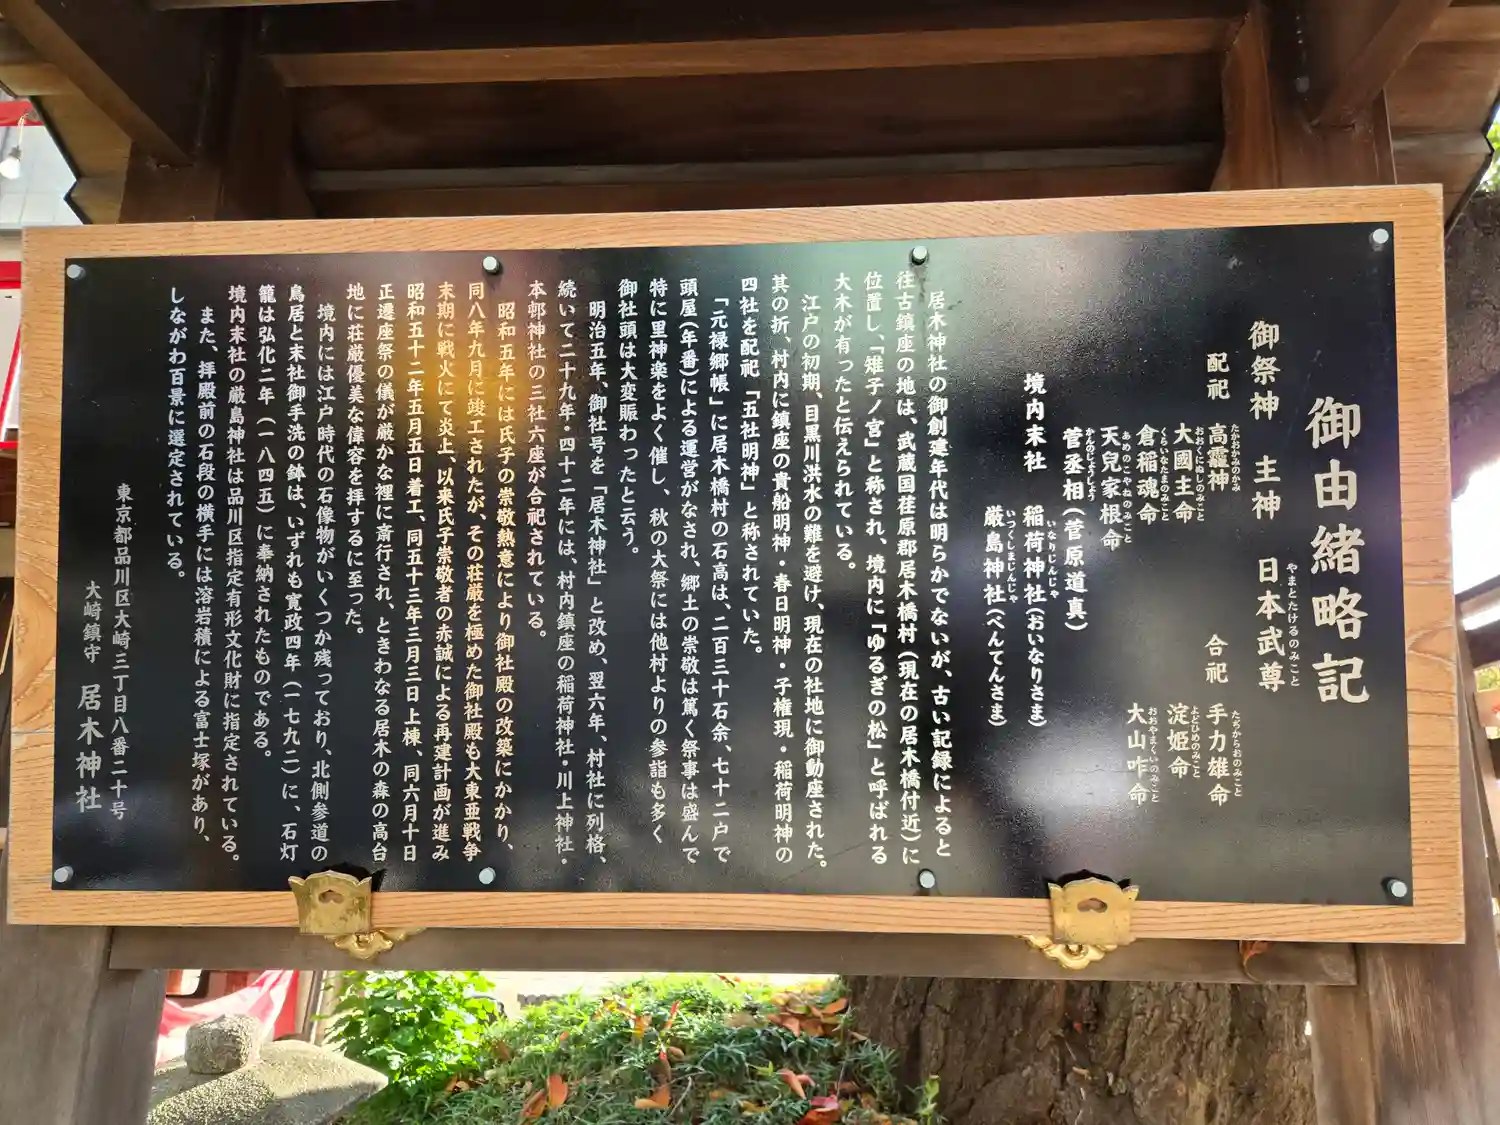 御由緒略記
御祭神　主神　日本武尊
やまとたけるのみこと
配祀　高龗神
たかおかみのかみ
大國主命
おおくにぬしのみこと
倉稲魂命
くらいなたまのみこと
天兒家根命
あめのこやねのみこと
菅丞相（菅原道真）
かんのしょうじょう
合祀　手力雄命
たぢからおのみこと
淀姫命
よどひめのみこと
大山咋命
おおやまくいのみこと
境内末社　稲荷神社（おいなりさま）
いなりじんじゃ
厳島神社（べんてんさま）
いつくしまじんじゃ
居木神社の御創建年代は明らかでないが、古い記録によると
往古鎮座の地は、武蔵国荏原郡居木橋村（現在の居木橋付近）に
位置し、「雉子ノ宮」と称され、境内に「ゆるぎの松」と呼ばれる
大木が有ったと伝えられている。
江戸の初期、目黒川洪水の難を避け、現在の社地に御動座された。
其の折、村内に鎮座の貴船明神・春日明神・子権現・稲荷明神の
四社を配祀「五社明神」と称されていた。
「元禄郷帳」に居木橋村の石高は、二百三十石余、七十二戸で
頭屋（年番）による運営がなされ、郷土の崇敬は篤く祭事は盛んで
特に里神楽をよく催し、秋の大祭には他村よりの参詣も多く
御社頭は大変賑わったと云う。
明治五年、御社号を「居木神社」と改め、翌六年、村社に列格、
続いて二十九年・四十二年には、村内鎮座の稲荷神社・川上神社・
本邨神社の三社六座が合祀されている。
昭和五年には氏子の崇敬熱意により御社殿の改築にかかり、
同八年九月に竣工されたが、その荘厳を極めた御社殿も大東亜戦争
末期に戦火にて炎上、以来氏子崇敬者の赤誠による再建計画が進み
昭和五十二年五月五日着工、同五十三年三月三日上棟、同六月十日
正遷座祭の儀が厳かな裡に斎行され、ときわなる居木の森の高台
地に荘厳優美な偉容を拝するに至った。
境内には江戸時代の石像物がいくつか残っており、北側参道の
鳥居と末社御手洗の鉢は、いずれも寛政四年（一七九二）に、石灯
籠は弘化二年（一八四五）に奉納されたものである。
境内末社の厳島神社は品川区指定有形文化財に指定されている。
また、拝殿前の石段の横手には溶岩積による富士塚があり、
しながわ百景に選定されている。
東京都品川区大崎三丁目八番二十号
大崎鎮守　居木神社